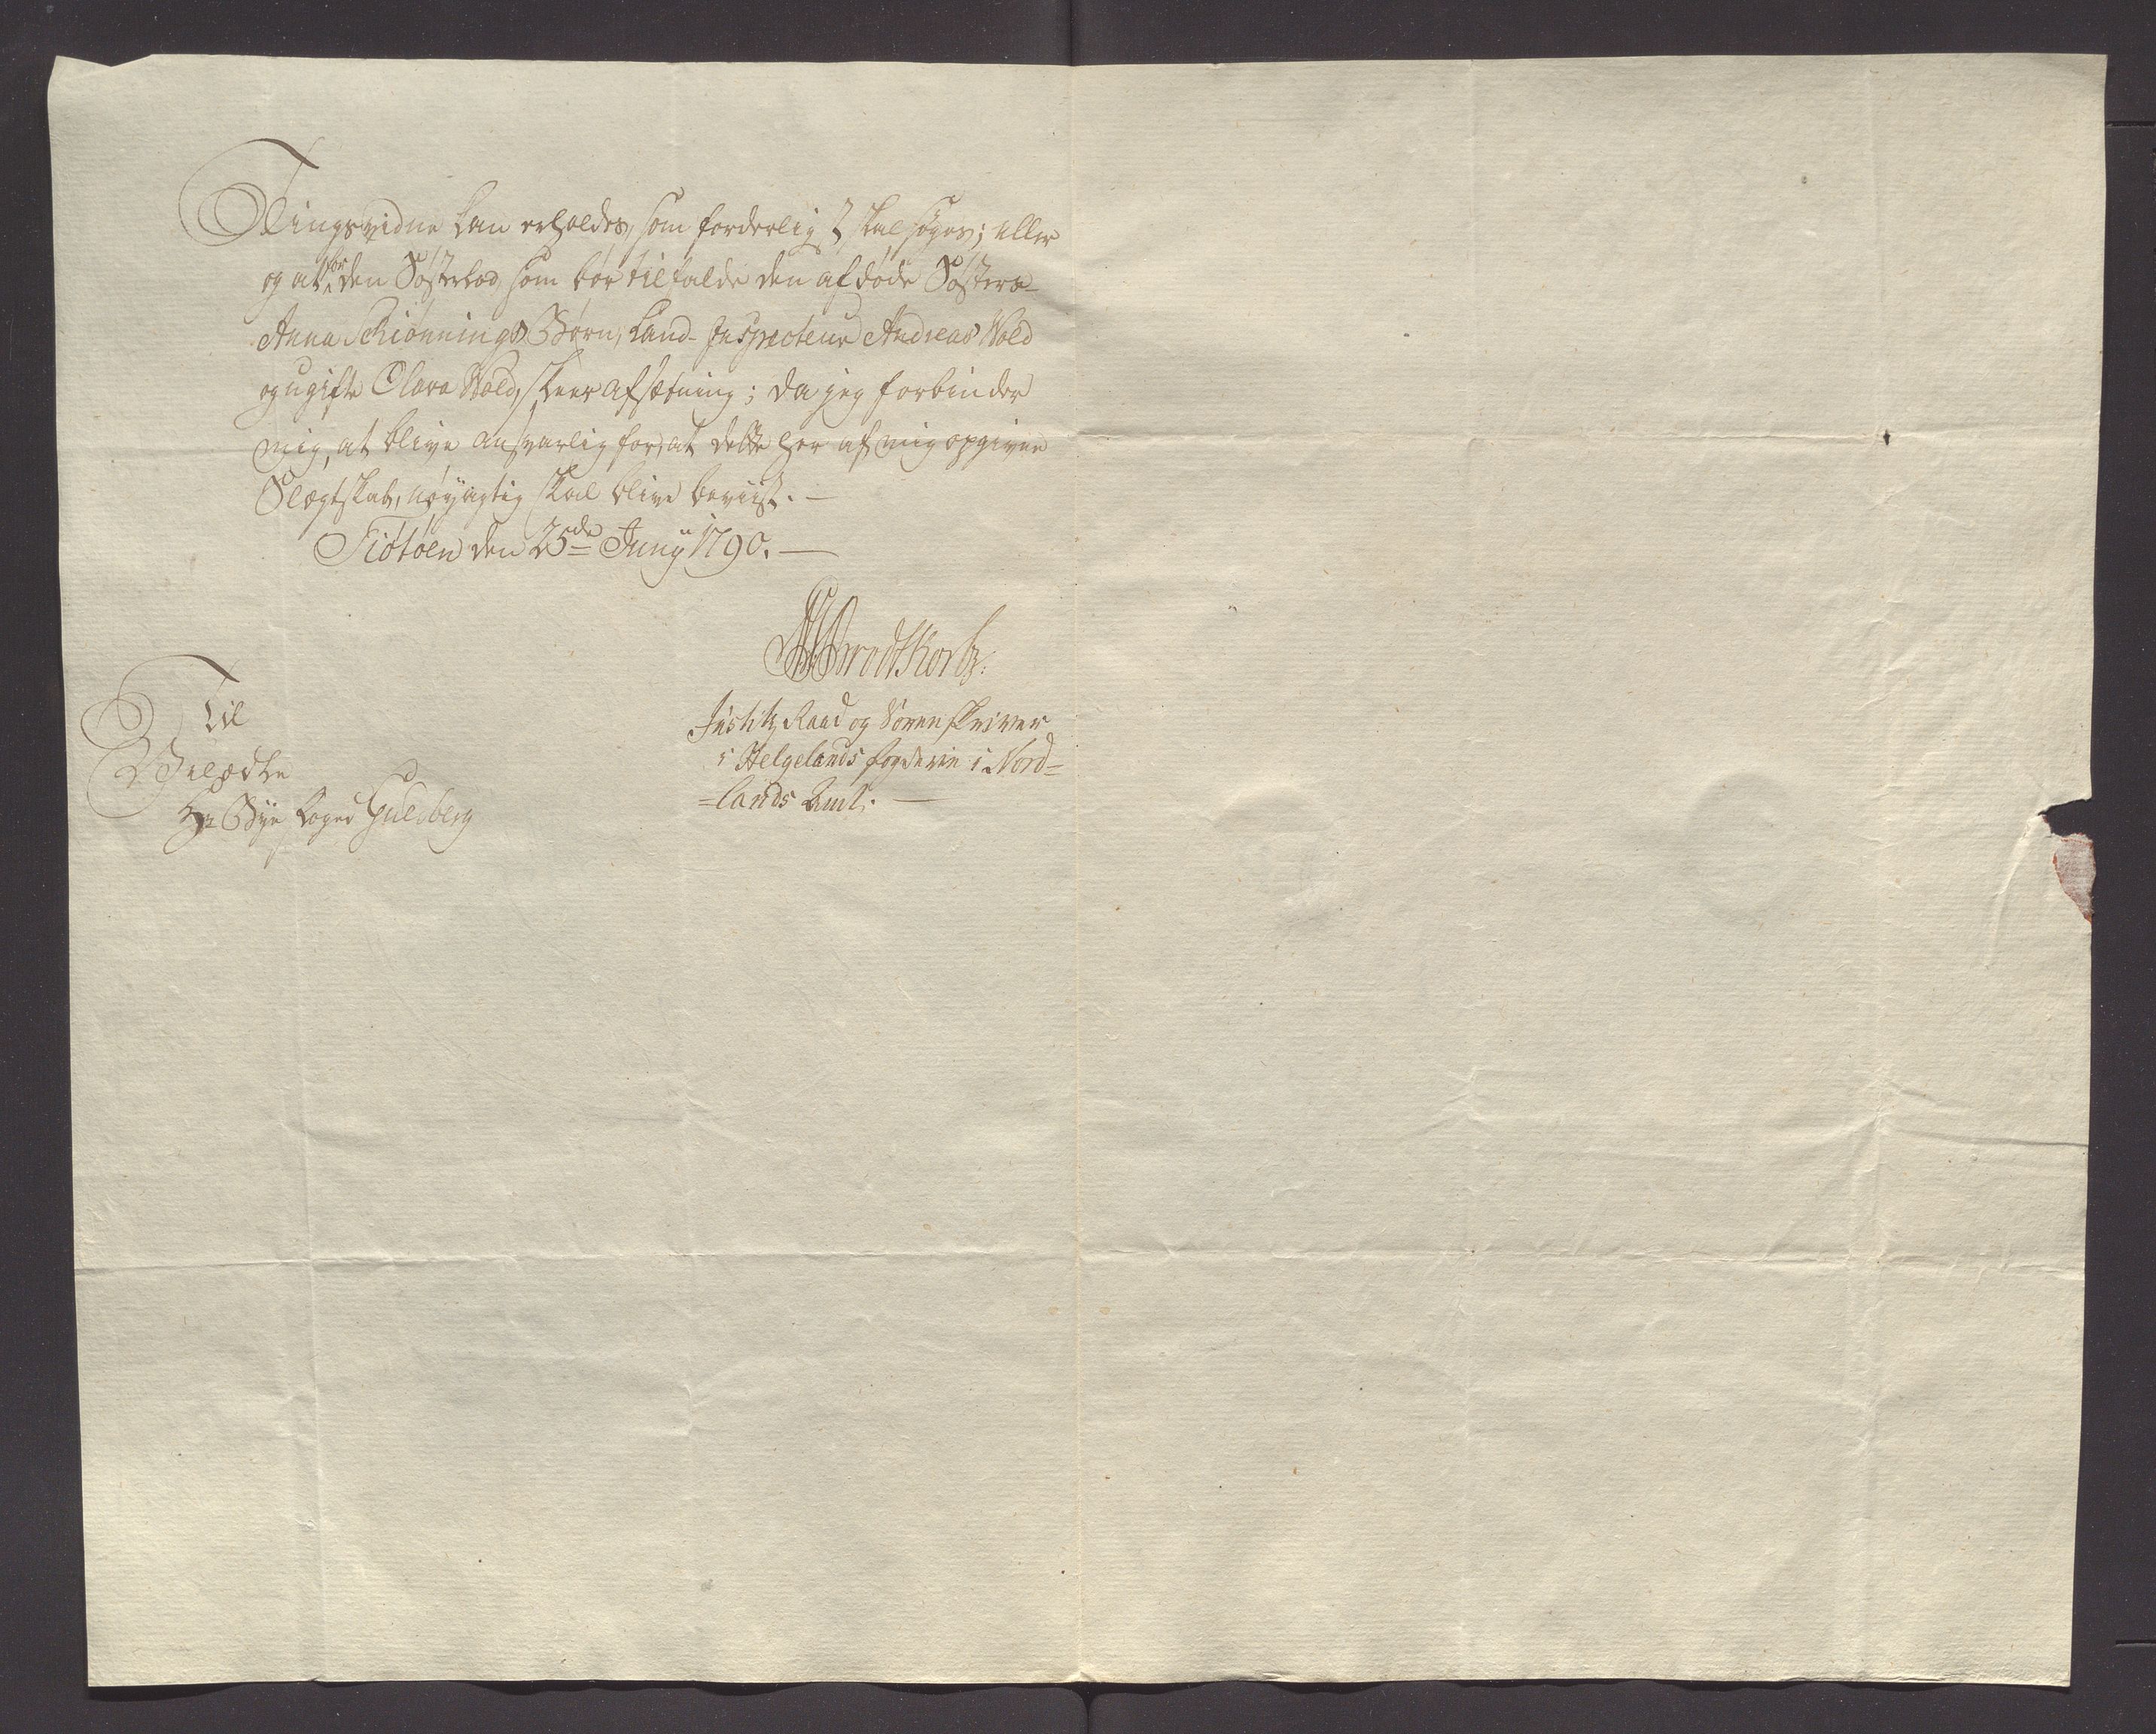 Tingsvidne kan erholdes, som forderligst skal søges; eller
og at for den Søsterlod, som bør tilfalde den afdøde Søsters
Anna Schiønnings Børn, Land-Inspecteur Andreas Wold
og ugifte Clara Wold, skeer afsætning; da jeg forbinder
mig, at blive ansvarlig for, at dette her af mig opgivne
Slægtskab, nøyagtig skal blive beviist. —
Tiøtøen den 25de Junÿ 1790. —
Brodtkorb.
Justitz Raad og Sorenskriver
i Helgelands fogderie i Nord=
=lands Amt. —
Til
Velædle
Hr Bye Foged Guldberg